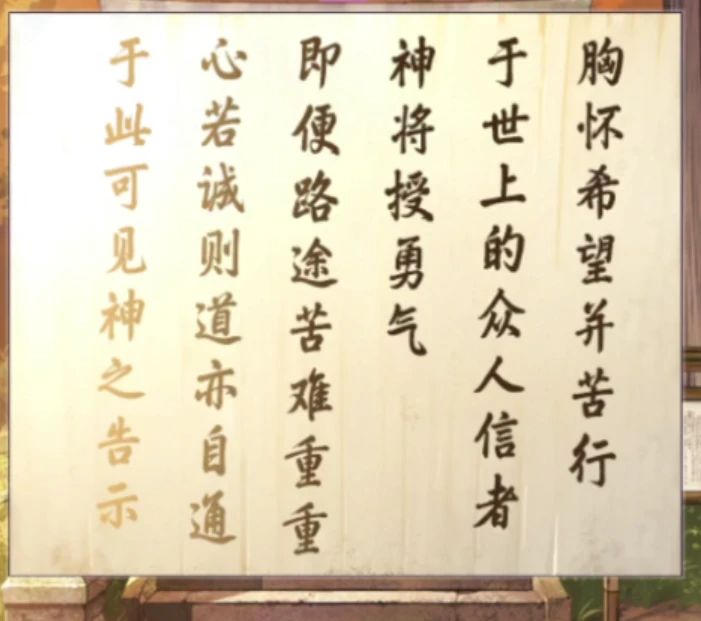 胸怀希望并苦行
于世上的众人信者
神将授勇气
即便路途苦难重重
心若诚则道亦自通
于此可见神之告示